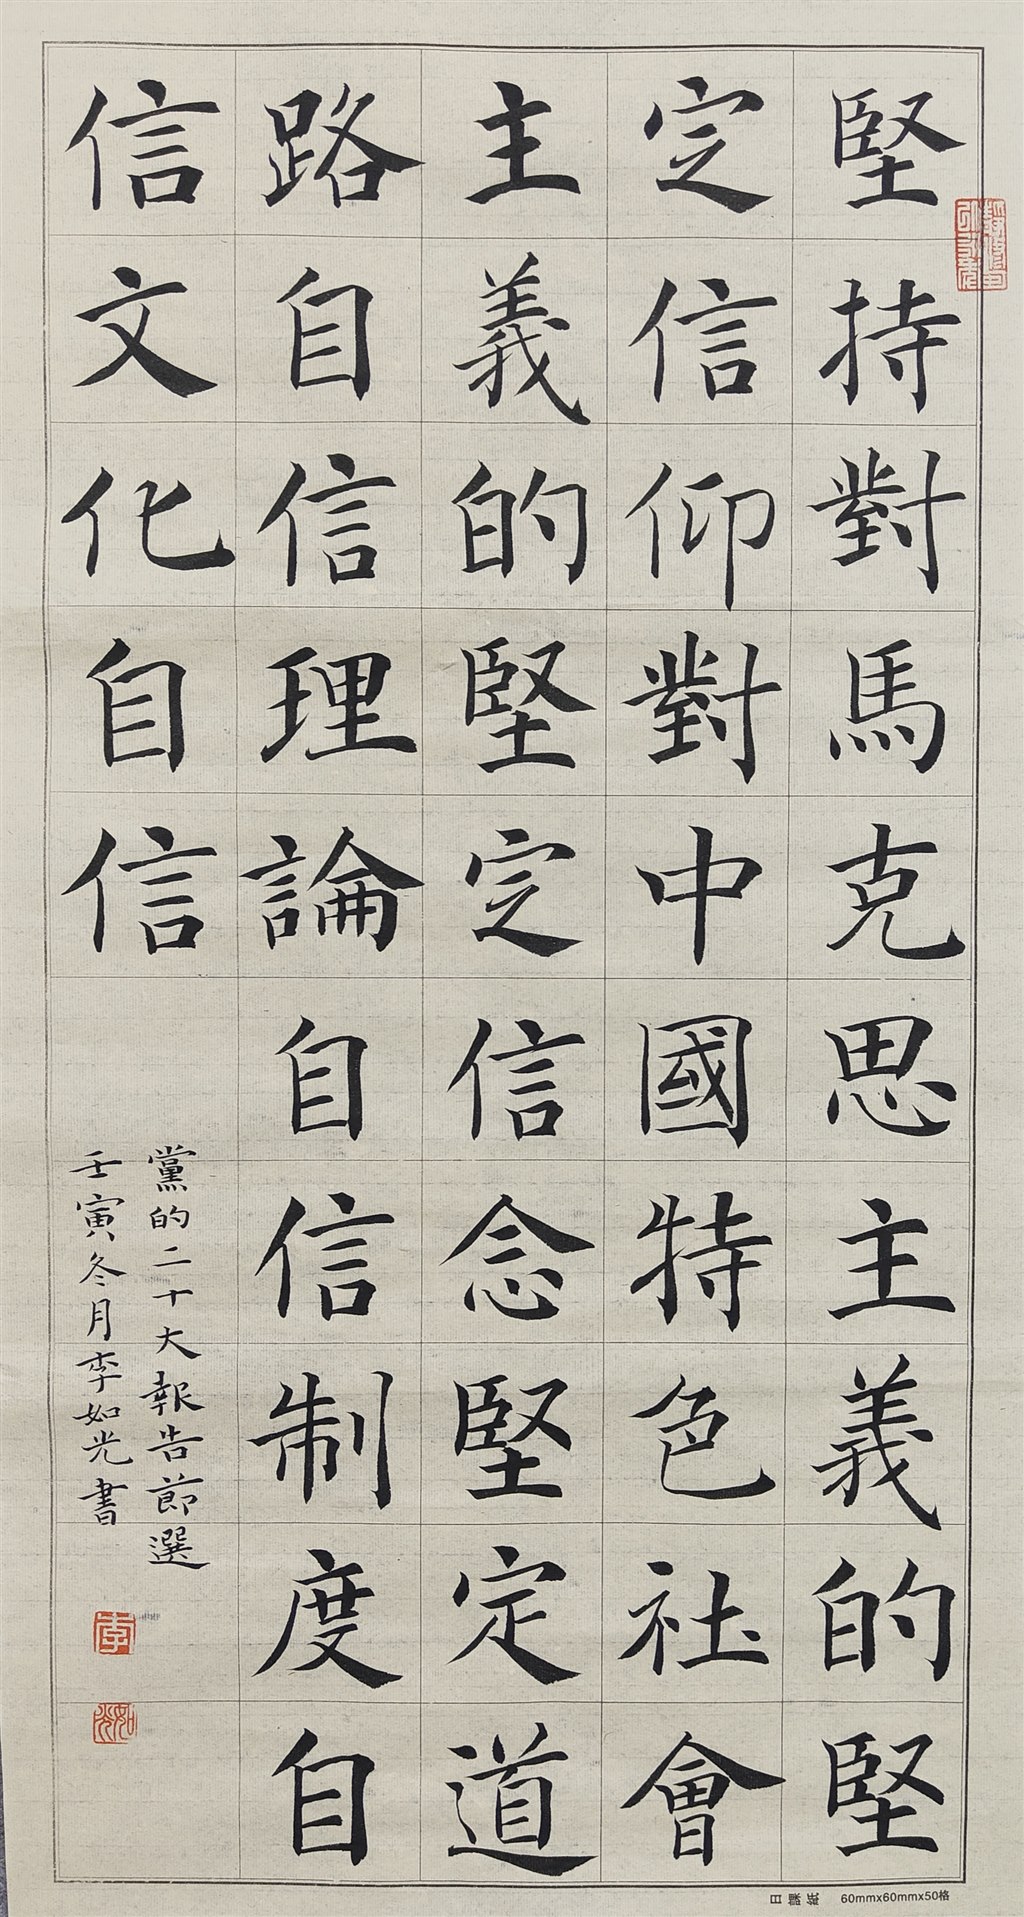 堅持對馬克思主義的堅
定信仰對中國特色社會
主義的堅定信念堅定道
路自信理論自信制度自
信文化自信
黨的二十大報告節選
壬寅冬月李如光書
李
如光
日課紙 60mmx60mmx50格